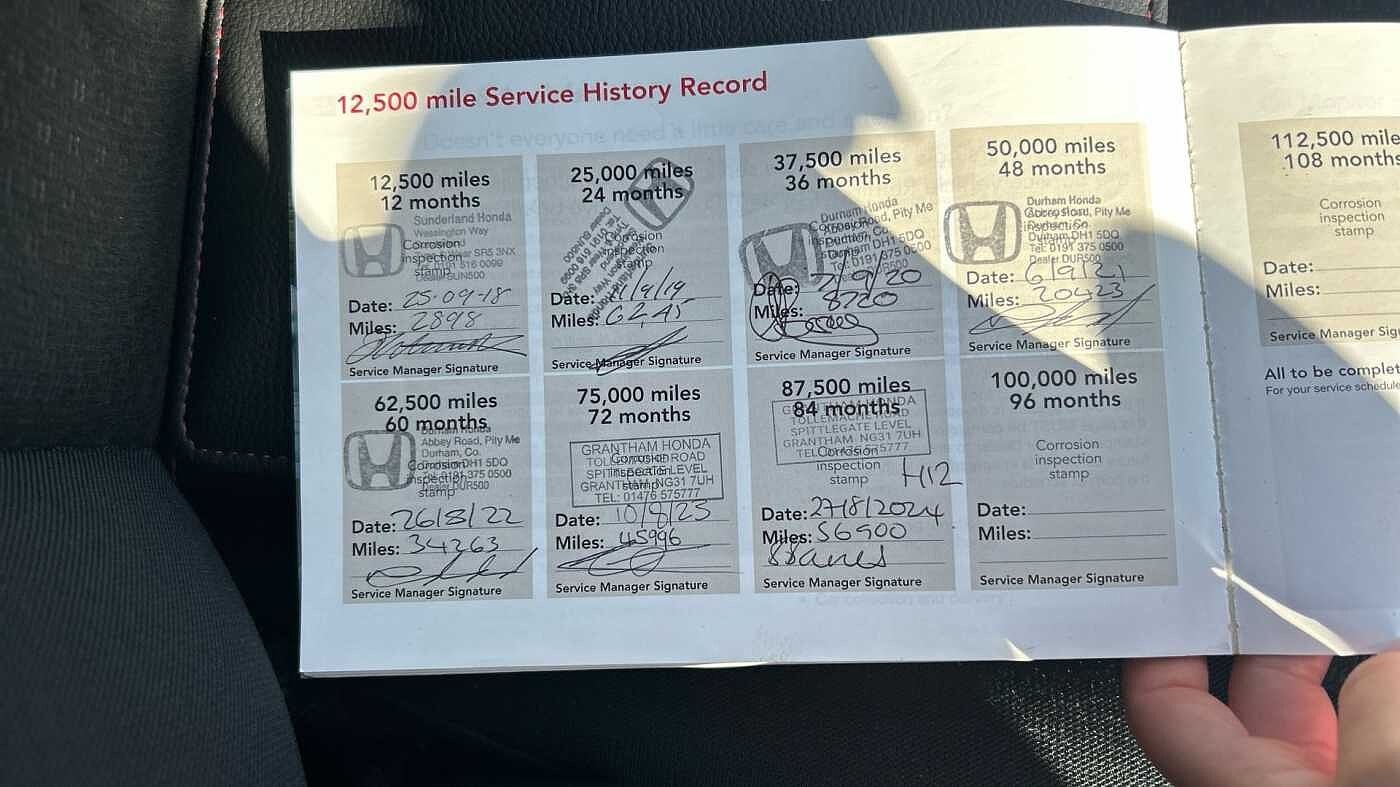 12,500 mile Service History Record
12,500 miles
12 months
Sunderland Honda
Wessington Way
SR5 3NX
Corrosion
inspection
stamp
Date: 25-09-18
Miles: 2898
Service Manager Signature
25,000 miles
24 months
Corrosion
inspection
stamp
Date: 11/9/19
Miles: 6245
Service Manager Signature
37,500 miles
36 months
Durham Honda
Abbey Road, Pity Me
Durham, Co.
Durham DH1 5DQ
Tel: 0191 375 0500
Dealer DUR500
Corrosion
inspection
stamp
Date: 2/9/20
Miles: 8720
Service Manager Signature
50,000 miles
48 months
Durham Honda
Abbey Road, Pity Me
Durham, Co.
Durham DH1 5DQ
Tel: 0191 375 0500
Dealer DUR500
Corrosion
inspection
stamp
Date: 6/9/21
Miles: 20423
Service Manager Signature
62,500 miles
60 months
Durham Honda
Abbey Road, Pity Me
Durham, Co.
Durham DH1 5DQ
Tel: 0191 375 0500
Dealer DUR500
Corrosion
inspection
stamp
Date: 26/8/22
Miles: 34263
Service Manager Signature
75,000 miles
72 months
GRANTHAM HONDA
TOLLEMACHE ROAD
SPITTLEGATE LEVEL
GRANTHAM NG31 7UH
TEL: 01476 575777
Corrosion
inspection
stamp
Date: 10/8/23
Miles: 45996
Service Manager Signature
87,500 miles
84 months
GRANTHAM HONDA
TOLLEMACHE ROAD
SPITTLEGATE LEVEL
GRANTHAM NG31 7UH
TEL: 01476 575777
Corrosion
inspection
stamp
H12
Date: 27/8/2024
Miles: 56900
Service Manager Signature
100,000 miles
96 months
Corrosion
inspection
stamp
Date:
Miles:
Service Manager Signature
112,500 mile
108 months
Corrosion
inspection
stamp
Date:
Miles:
Service Manager Sig
All to be complet
For your service schedule